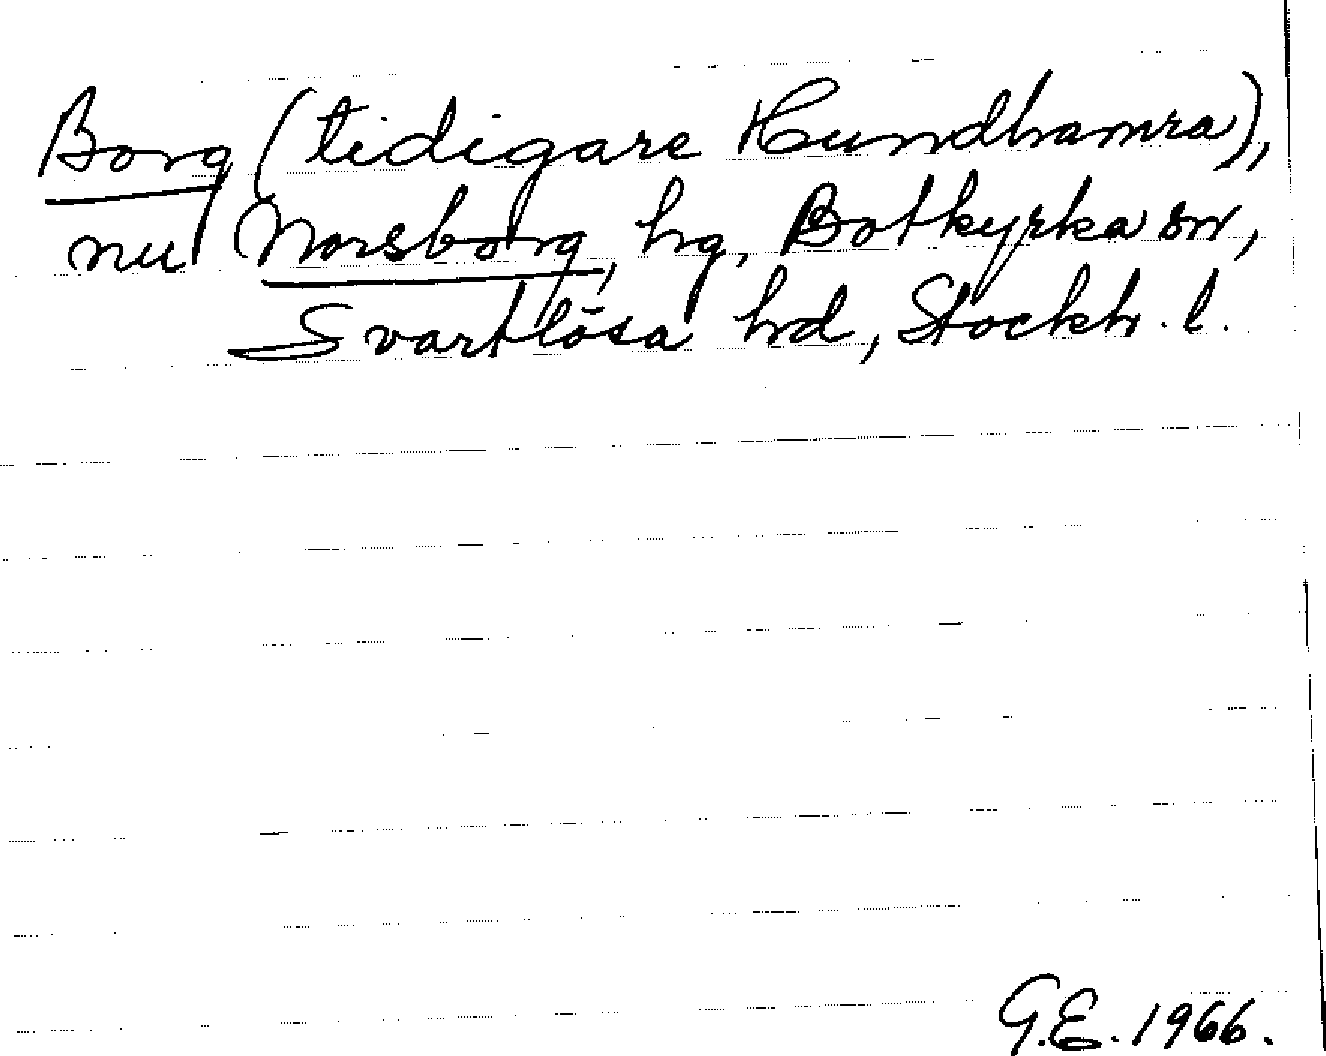 Borg (tidigare Hundhamra),
nu Norsborg, hg, Botkyrka sn,
Svartlösa hd, Stockh. l.
G.E. 1966.